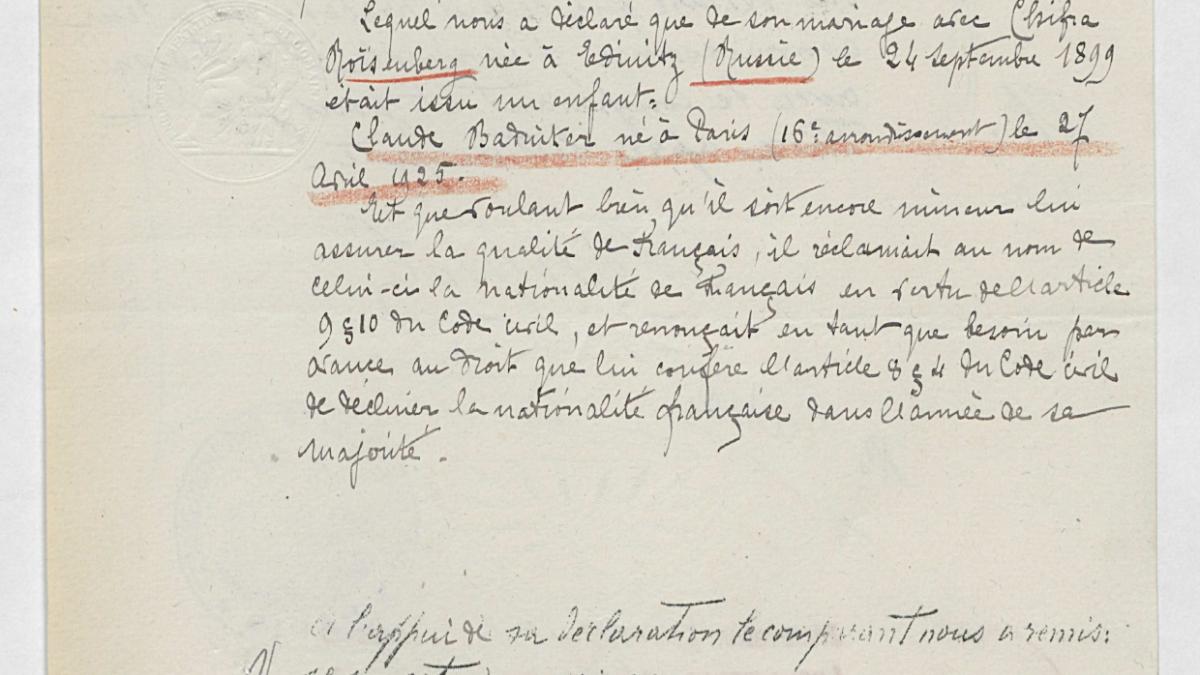 Lequel nous a déclaré que de son mariage avec Chifra
Roïsenberg née à Edinitz (Russie) le 24 septembre 1899
était issu un enfant:
Claude Baduiter né à Paris (16e arrondissement) le 27
Avril 1925.
Et que voulant bien qu'il soit encore mineur lui
assurer la qualité de Français, il réclamait au nom de
celui-ci la nationalité de Français en vertu de l'article
9 § 10 du Code civil, et renonçait en tant que besoin par
avance au droit que lui confère l'article 8 § 4 du Code civil
de décliner la nationalité française dans l'année de sa
majorité.
A l'appui de sa déclaration le comparant nous a remis: